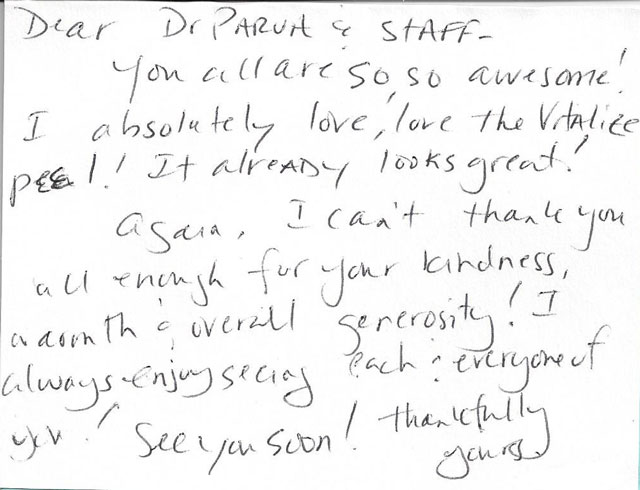 Dear Dr PARUA & STAFF-
You all are so, so awesome!
I absolutely love, love the Vitalize
peel! It already looks great!
Again, I can't thank you
all enough for your kindness,
warmth & overall generosity! I
always enjoy seeing each & everyone of
you! See you soon! Thankfully
yours